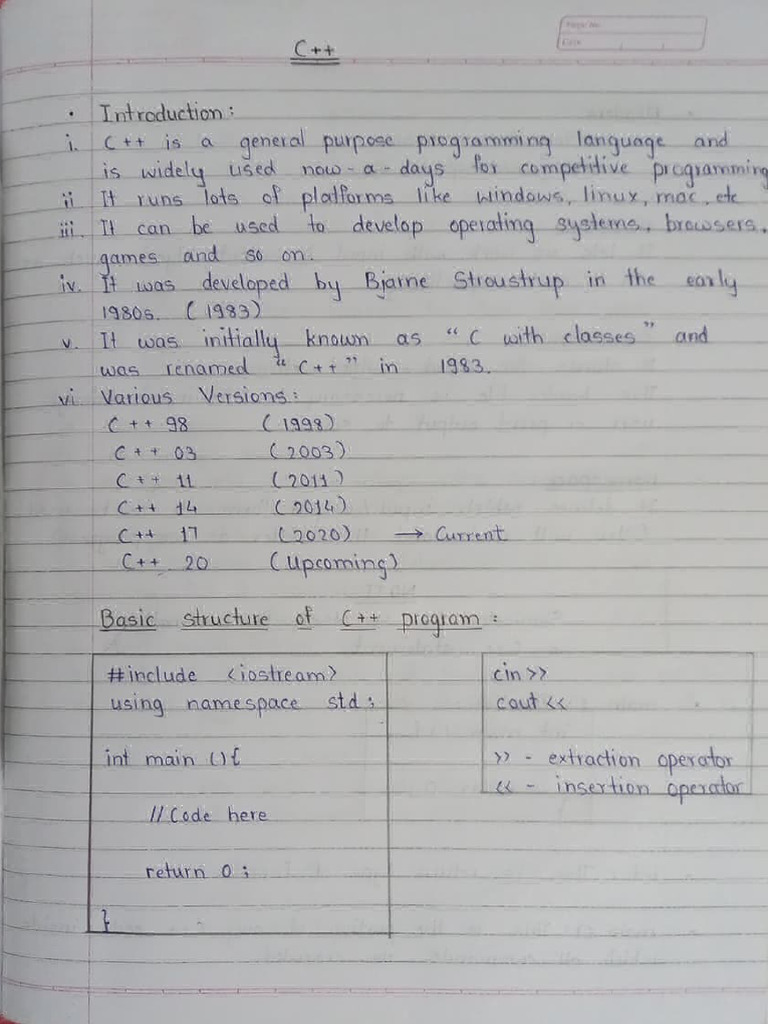 C++
• Introduction:
i. C++ is a general purpose programming language and
is widely used now-a-days for competitive programming
ii It runs lots of platforms like windows, linux, mac, etc
iii. It can be used to develop operating systems, browsers,
games and so on.
iv. It was developed by Bjarne Stroustrup in the early
1980s. (1983)
v. It was initially known as "C with classes" and
was renamed "C++" in 1983.
vi Various Versions:
C++ 98 (1998)
C++ 03 (2003)
C++ 11 (2011)
C++ 14 (2014)
C++ 17 (2020) → Current
C++ 20 (Upcoming)
Basic structure of C++ program:
#include <iostream>
using namespace std;
int main (){
//Code here
return 0;
}
cin>>
cout<<
>> - extraction operator
<< - insertion operator